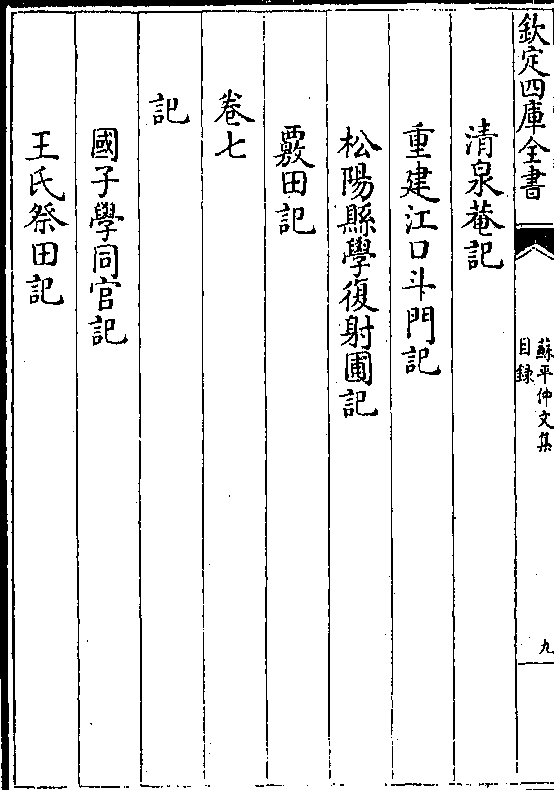 欽定四庫全書
蘇平仲文集
目録
九
清泉菴記
重建江口斗門記
松陽縣學復射圃記
覈田記
卷七
記
國子學同官記
王氏祭田記